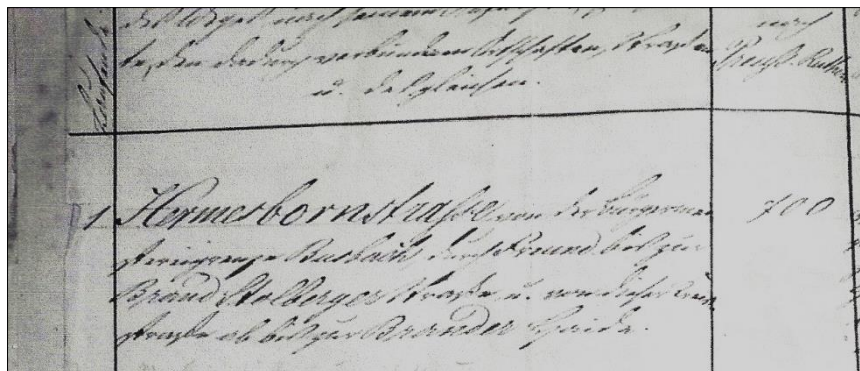 te, den dadurch verbundenen Ortschaften, Straßen
u. desgleichen.
nach
Preuß. Ruthen
1 Hermesbornstraße von der Bürgermei-
stereigrenze Busbach durch Freund bis zur
Brand Stolberger Straße u. von dieser
straße ab bis zur Brander Haide.
700